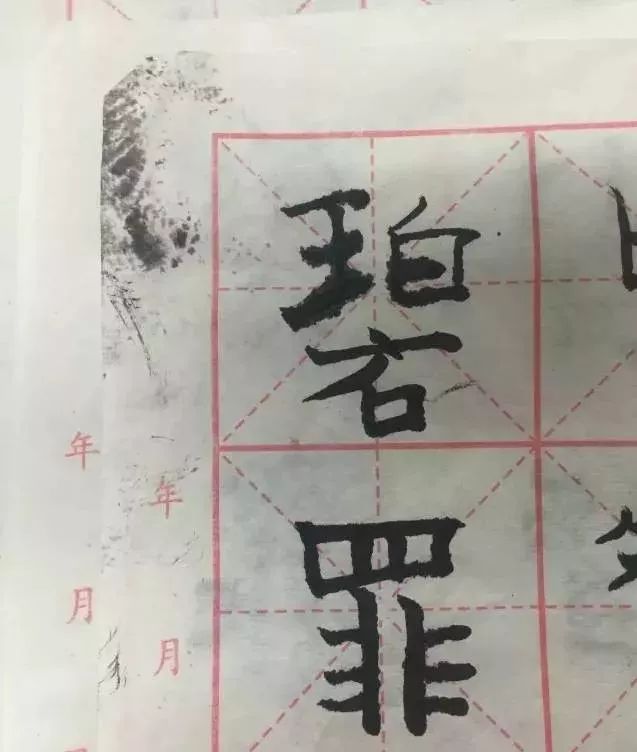 碧
罪
年
月
年
月